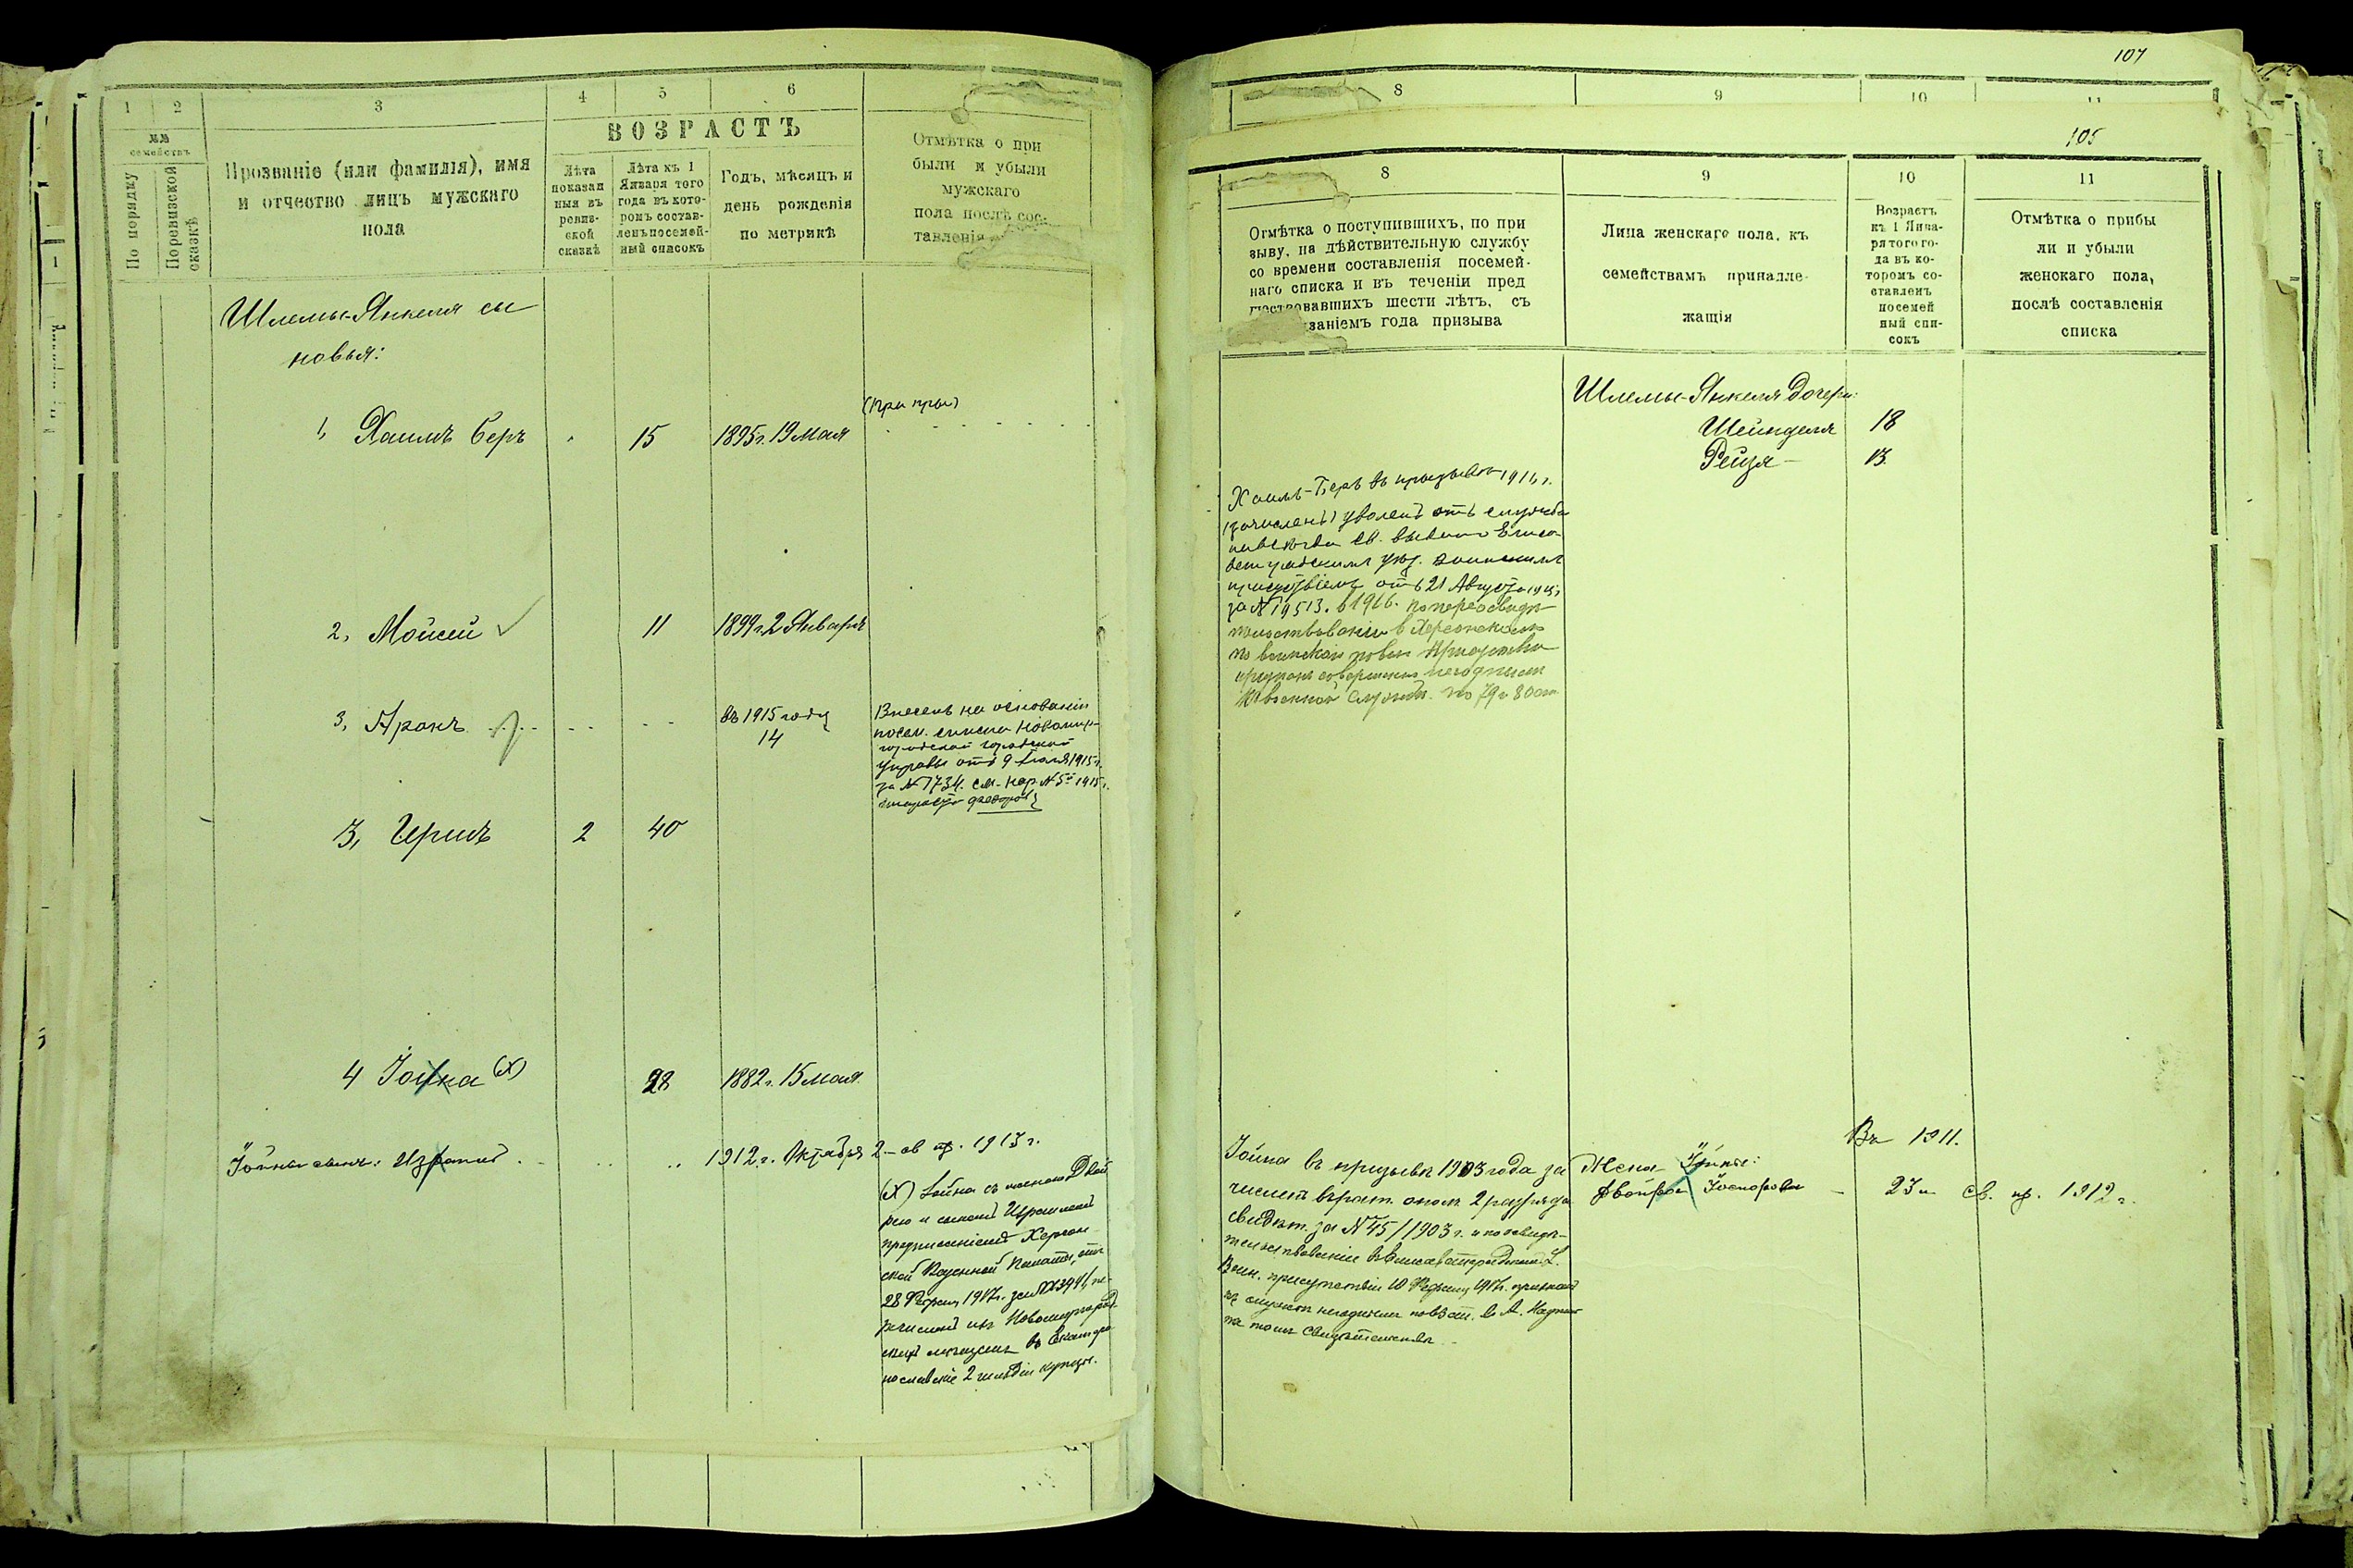 1
2
3
4
5
6
№№
семействъ
По порядку
По ревизской
сказкѣ
Прозваніе (или фамилія), имя
и отчество лицъ мужскаго
пола
ВОЗРАСТЪ
Лѣта
показан
ныя въ
ревиз-
ской
сказкѣ
Лѣта къ 1
Января того
года въ кото-
ромъ состав-
ленъ посемей-
ный списокъ
Годъ, мѣсяцъ и
день рожденія
по метрикѣ
Отмѣтка о при
были и убыли
мужскаго
пола послѣ сос-
тавленія
Шлемы-Янкеля сы
новья:
1, Хаимъ Беръ 15 1895 г. 19 Мая
2, Мойсей 11 1899 г. 2 Января
3, Аронъ въ 1915 году
14
Внесенъ на основаніи
посем. списка Новомир-
городской городской
управы отъ 9 Іюля 1915 г.
за № 1734. см. нар. № 5 1915 г.
3, Гершъ 2 40
4 Іойна (х) 28 1882 г. 15 мая
Іойны сынъ: Израиль 1912 г. Октября 2 - св. пр. 1913 г.
(х) Іойна съ женою Двой
рою и сыномъ Израилемъ
предписаніемъ Херсон
ской Казенной Палаты, отъ
28 1917 г. за №
речисленъ изъ Новомиргород
скихъ мѣщанъ въ Екатери
нославскіе 2 гильдіи купцы.
107
8
9
10
11
105
8
9
10
11
Отмѣтка о поступившихъ, по при
зыву, на дѣйствительную службу
со времени составленія посемей-
наго списка и въ теченіи пред
шествовавшихъ шести лѣтъ, съ
заніемъ года призыва
Лица женскаго пола, къ
семействамъ принадле-
жащія
Возрастъ
къ 1 Янва-
ря того го-
да въ ко-
торомъ со-
ставленъ
посемей
ный спи-
сокъ
Отмѣтка о прибы
ли и убыли
женскаго пола,
послѣ составленія
списка
Шлемы-Янкеля дочери:
Шейнделя 18
Рейзя 13
Хаимъ-Беръ въ призывѣ 191
зачисленъ уволенъ отъ службы
навсегда св. выдано Елиса
ветградскимъ уѣз. воинскимъ
присутствіемъ отъ 21 Августа 191
за № 19513. в 1916. по переосвидѣ-
тельствованіи в Херсонском
по воинской повин. присутствіи
признан совершенно негодным
к военной службѣ. по 79 и 80 ст.
Въ 1911.
Іойна въ призывѣ 1903 года за
численъ въ рат. ополч. 2 разряда
свидѣт. за № 45/1903 г. и по освидѣ-
тельствованіи въ Елисаветградскомъ У.
Воин. присутствіи 10 1917 г. признанъ
къ службѣ негоднымъ
на томъ свидѣтельствѣ
Жена Іойны:
Двойра Іосифова 23 л св. пр. 1912 г.